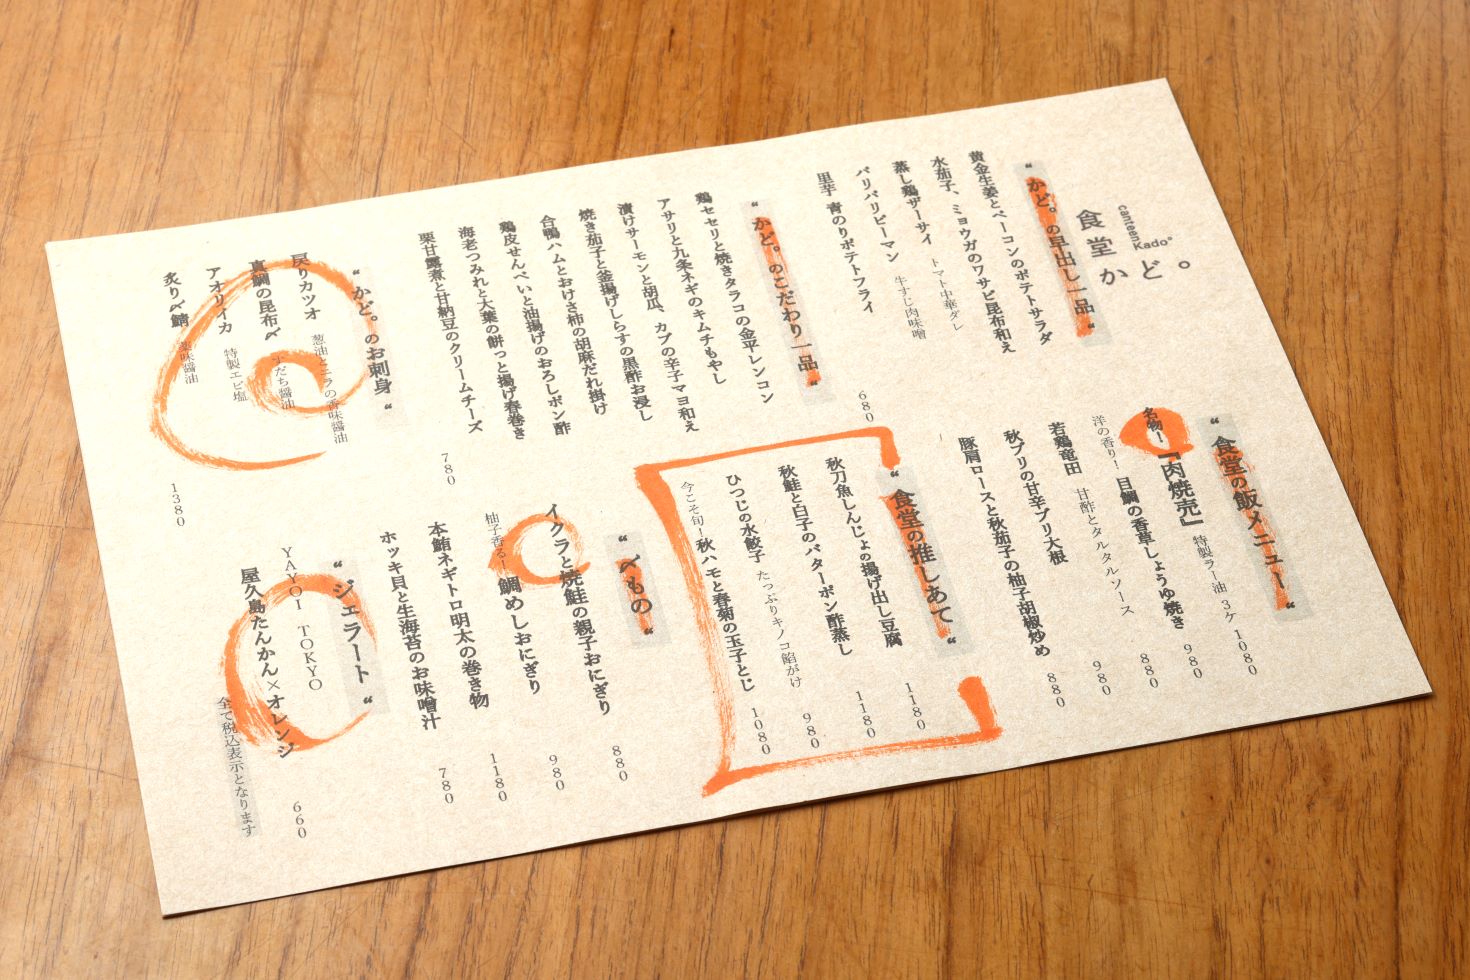 canteen Kado°
食堂かど。
“かど。の早出し一品“
黄金生姜とベーコンのポテトサラダ
水茄子、ミョウガのワサビ昆布和え
蒸し鶏ザーサイ トマト中華ダレ
パリパリピーマン 牛すじ肉味噌
里芋 青のりポテトフライ
680
“かど。のこだわり一品“
鶏セセリと焼きタラコの金平レンコン
アサリと九条ネギのキムチもやし
漬けサーモンと胡瓜、カブの辛子マヨ和え
焼き茄子と釜揚げしらすの黒酢お浸し
合鴨ハムとおけさ柿の胡麻だれ掛け
鶏皮せんべいと油揚げのおろしポン酢
海老つみれと大葉の餅っと揚げ春巻き
栗甘露煮と甘納豆のクリームチーズ
780
“かど。のお刺身“
戻りカツオ 葱油とニラの香味醤油
真鯛の昆布〆 すだち醤油
アオリイカ 特製エビ塩
炙り〆鯖 薬味醤油
1380
“食堂の飯メニュー“
名物！『肉焼売』 特製ラー油 3ケ 1080
洋の香り！目鯛の香草しょうゆ焼き 980
若鶏竜田 甘酢とタルタルソース 880
秋ブリの甘辛ブリ大根 980
豚肩ロースと秋茄子の柚子胡椒炒め 880
“食堂の推しあて“
秋刀魚しんじょの揚げ出し豆腐 1180
秋鮭と白子のバターポン酢蒸し 1180
ひつじの水餃子 たっぷりキノコ餡がけ 980
今こそ旬！秋ハモと春菊の玉子とじ 1080
“〆もの“
イクラと焼鮭の親子おにぎり 880
柚子香る！鯛めしおにぎり 980
本鮪ネギトロ明太の巻き物 1180
ホッキ貝と生海苔のお味噌汁 780
“ジェラート“
YAYOI TOKYO
屋久島たんかん×オレンジ 660
全て税込表示となります